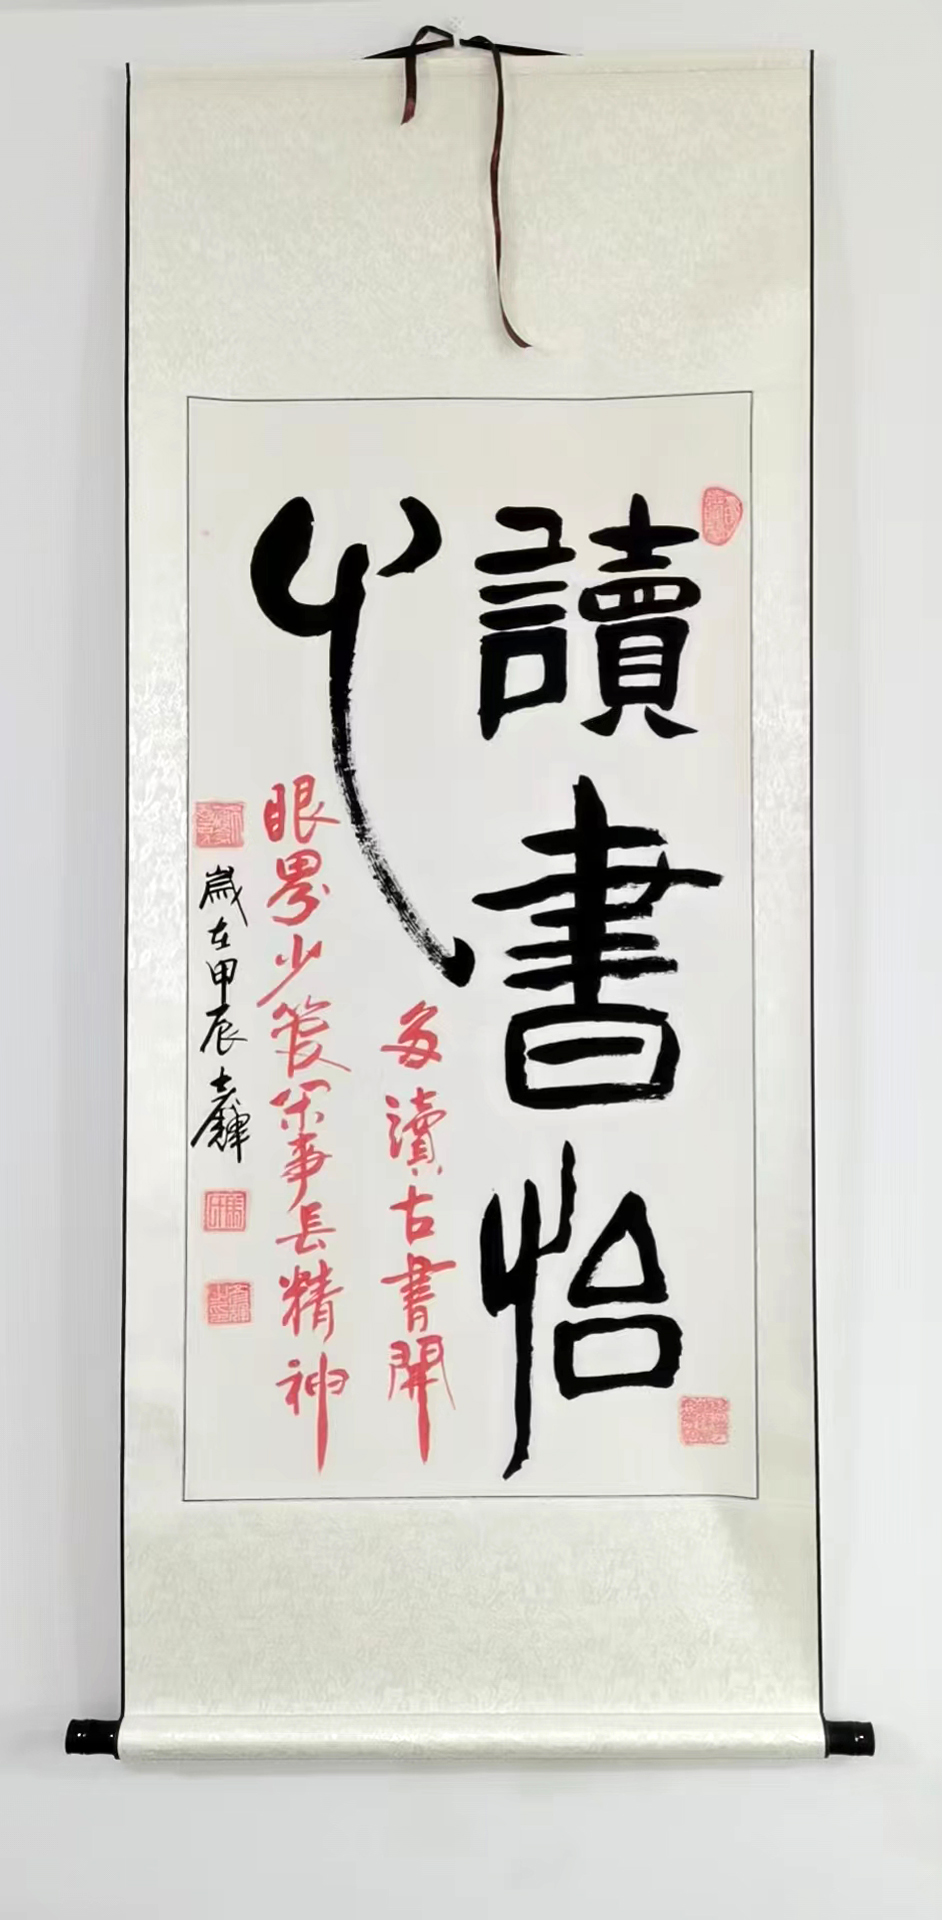 讀書怡
心
多讀古書開
眼界少管闲事長精神
歲在甲辰